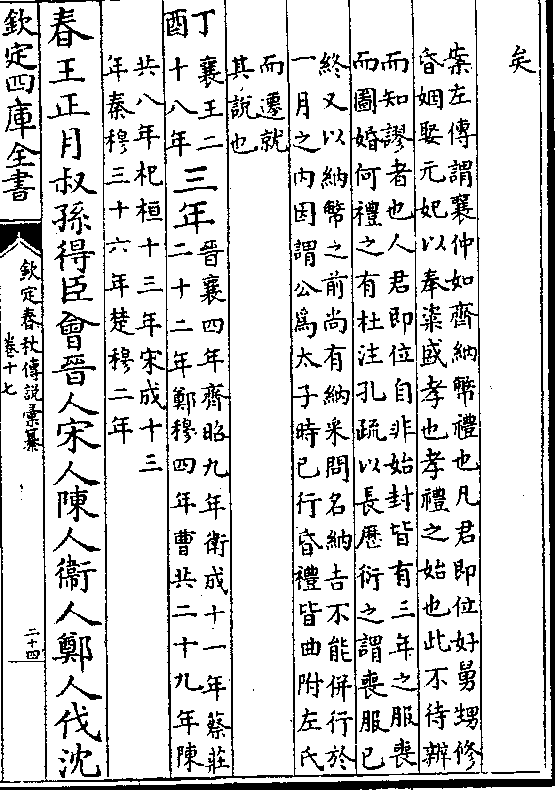 矣
案左傳謂襄仲如齊納幣禮也凡君即位好舅甥修
昏姻娶元妃以奉粢盛孝也孝禮之始也此不待辨
而知謬者也人君即位自非始封皆有三年之服喪
而圖婚何禮之有杜注孔疏以長歷衍之謂喪服已
終又以納幣之前尚有納采問名納吉不能併行於
一月之内因謂公爲太子時已行昏禮皆曲附左氏
而遷就
其說也
丁酉
襄王二
十八年
三年
晉襄四年齊昭九年衛成十一年蔡莊
二十二年鄭穆四年曹共二十九年陳
共八年杞桓十三年宋成十三
年秦穆三十六年楚穆二年
春王正月叔孫得臣會晉人宋人陳人衞人鄭人伐沈
欽定四庫全書
欽定春秋傳說彙纂
卷十七
二十四